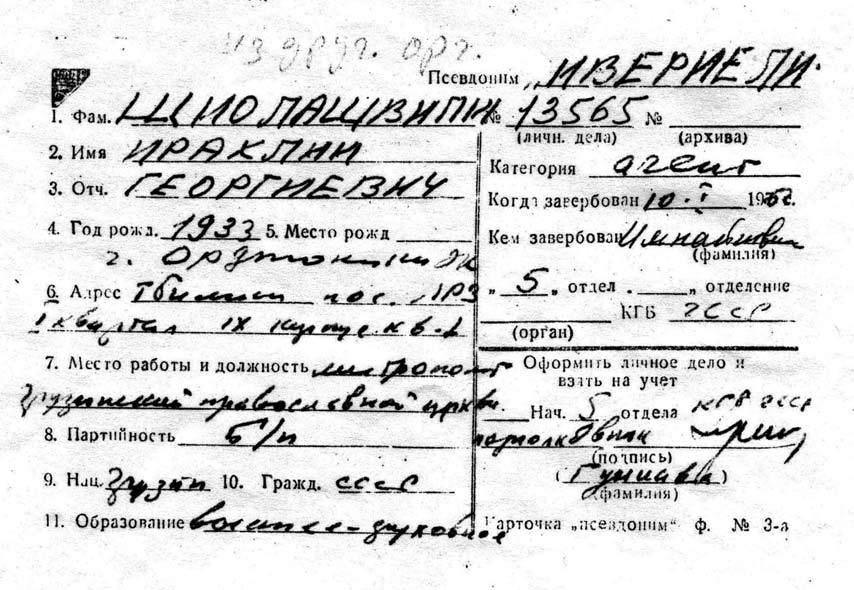 из друг. орг.
Псевдоним „ИВЕРИЕЛИ"
1. Фам. ШИОЛАШВИЛИ
2. Имя ИРАКЛИЙ
3. Отч. ГЕОРГИЕВИЧ
4. Год рожд. 1933 5. Место рожд
г. Орджоникидзе
6. Адрес Тбилиси пос. ЛРЗ
I квартал IX корпус кв.
7. Место работы и должность митрополит
грузинской православной церкви
8. Партийность Б/п
9. Нац. грузин 10. Гражд. СССР
11. Образование высшее-духовное
№ 13565 №
(личн. дела) (архива)
Категория агент
Когда завербован 10. I 196 г.
Кем завербован
(фамилия)
„ 5 „ отдел „ отделение
КГБ ГССР
(орган)
Оформить личное дело и
взять на учет
Нач. 5 отдела КГБ ГССР
(подпись)
(Гуншава)
(фамилия)
Карточка „псевдоним" ф. № 3-а